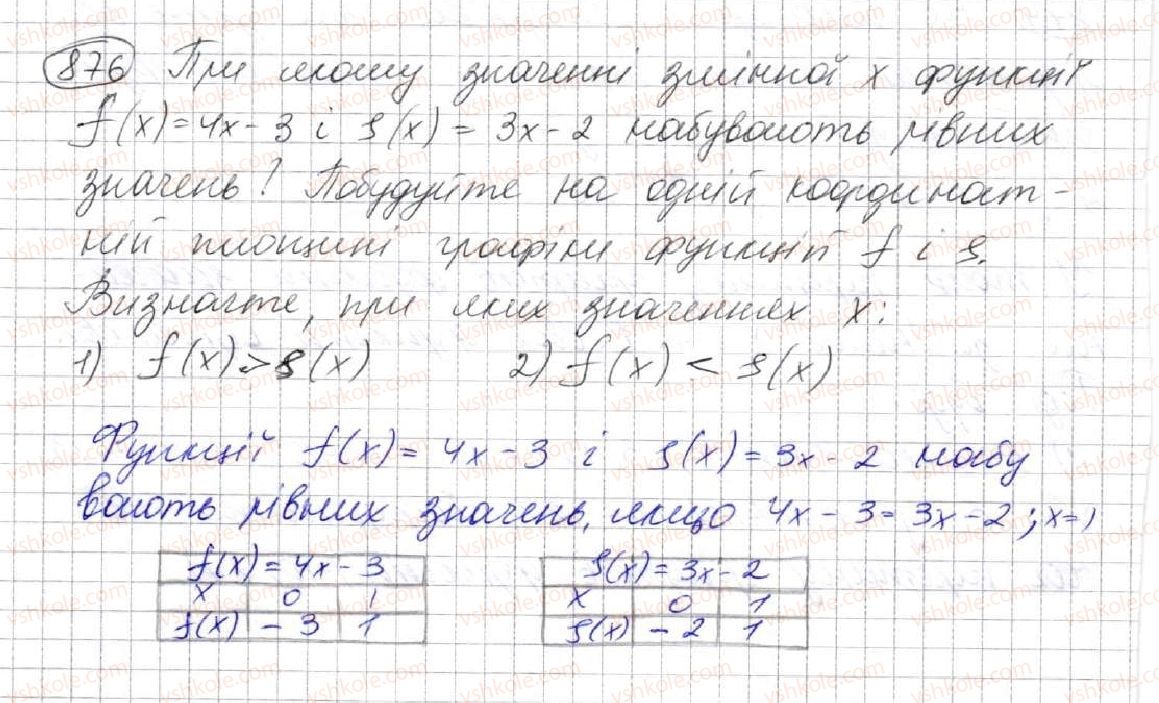 876 При якому значенні змінної x функції
f(x) = 4x - 3 і g(x) = 3x - 2 набувають рівних
значень? Побудуйте на одній координат-
ній площині графіки функцій f і g.
Визначте, при яких значеннях x:
1) f(x) > g(x) 2) f(x) < g(x)
Функції f(x) = 4x - 3 і g(x) = 3x - 2 набу
вають рівних значень, якщо 4x - 3 = 3x - 2; x = 1
f(x) = 4x - 3
x 0 1
f(x) - 3 1
g(x) = 3x - 2
x 0 1
g(x) - 2 1